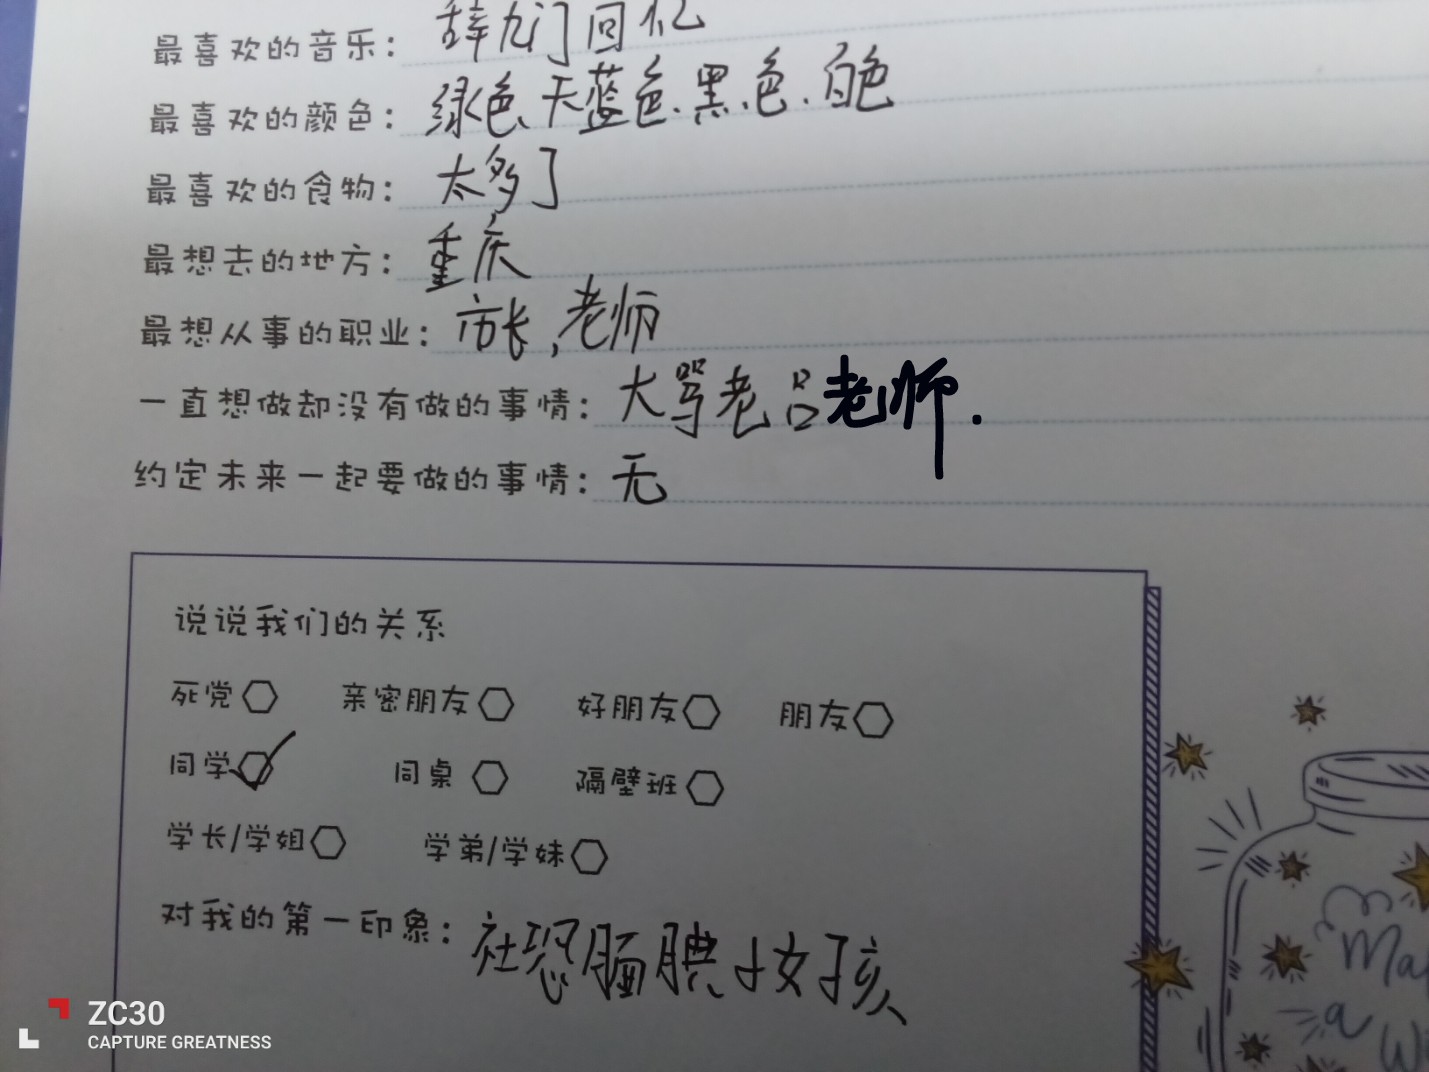 最喜欢的音乐：辞九门回忆
最喜欢的颜色：绿色、天蓝色、黑色、白色
最喜欢的食物：太多了
最想去的地方：重庆
最想从事的职业：市长，老师
一直想做却没有做的事情：大骂老吕老师.
约定未来一起要做的事情：无
说说我们的关系
死党 亲密朋友 好朋友 朋友
同学 同桌 隔壁班
学长/学姐 学弟/学妹
对我的第一印象：社恐腼腆小女孩
a
ZC30
CAPTURE GREATNESS